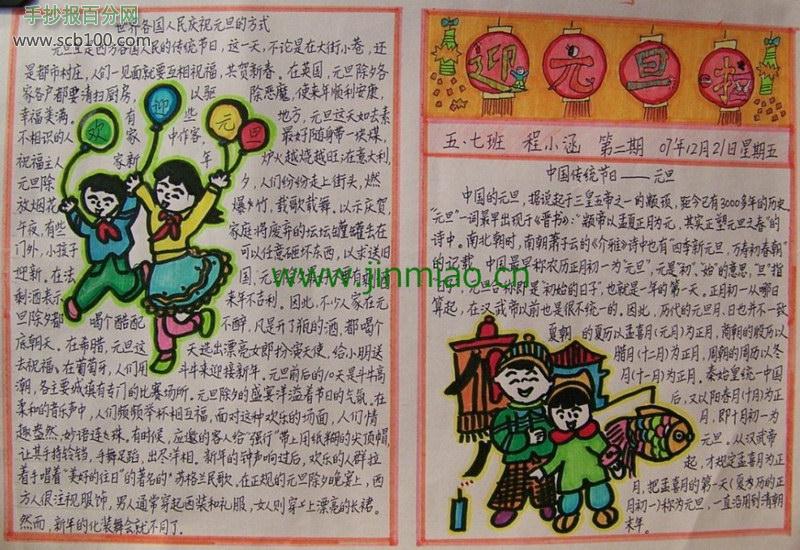 手抄报百分网
www.scb100.com
世界各国人民庆祝元旦的方式
元旦且是西方各国人民的传统节日，这一天，不论是在大街小巷，还
是都市村庄，人们一见面就要互相祝福，共贺新春。在英国，元旦除夕各
家各户都要清扫厨房，以驱除恶魔，使来年顺利安康
幸福美满。有些地方，元旦这天如去素
不相识的人家中作客，最好随身带一块煤，
祝福主人家新年炉火越烧越旺；在意大利，
元旦除夕，人们份份走上街头，燃
放烟花爆竹，载歌载舞。以示庆贺
午夜，有些家庭将废弃的坛坛罐罐去在
门外，小孩子可以任意破坏东西，以求送旧
迎新。在法国，元
剩酒表示来年不吉利。因此，不少人家在元
旦除夕都喝个酩酊不醉，凡是开了瓶的酒，都喝个
底朝天。在希腊，元旦这天选出漂亮女郎扮演天使，给小朋送
去祝福。在葡萄牙，人们用斗牛来迎接新年。元旦前后的10天是斗牛高
潮，各主要城填有专门的比赛场所。元旦除夕的盛宴洋溢着节日的气氛。在
柔和的音乐声中，人们频频举杯相互福，面对这种欢乐的场面，人们情
趣盎然，妙语连珠。有时候，应邀的客人给"强行"带上用纸糊的尖顶帽，
让其手持铃铛，手舞足蹈，出尽洋相。新年的钟声响过后，欢乐的人群拉
着手唱着"美好的往日"的著名的"苏格兰民歌，在正规的元旦除夕晚宴上，西
方人很注视服饰，男人通常穿起西装和礼服，女人则穿上漂亮的长裙。
然而，新年的化装舞会就不同了。
欢迎元旦
迎元旦报
五.七班 程小涵 第二期 07年12月21日星期五
中国传统节日——元旦
中国的元旦，据说起于三皇五帝之一的颛顼，距今已有3000多年的历史
"元旦"一词最早出现于《晋书》："颛帝以孟夏正月为元，其实正塑元旦之春"的
诗中。南北朝时，南朝萧子云的《介雅》诗中也有"四季新元旦，万寿初春朝"
的记载。中国最早称农历正月初一为"元旦"，元是"初"、"始"的意思，"旦"指
"日子"，元旦合称即是"初始的日子"，也就是一年的第一天。正月初一从哪日
算起，在汉武帝以前也是很不统一的。因此，历代的元旦月、日也并不一致
夏朝的夏历以孟喜月(元月)为正月，商朝的殷历以
腊月(十二月)为正月，周朝的周历以冬
月(十一月)为正月。秦始皇统一中国
后，又以阳春月(十月)为正
月，即十月初一为
元旦，从汉武帝
起，才规定孟喜月为正
月，把孟喜月的第一天(夏为历的正
月初一)称为元旦，一直沿用到清朝
末年。
www.jinmiao.cn